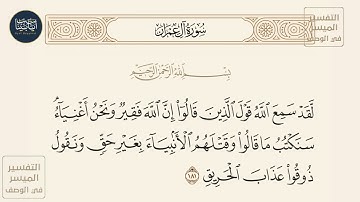 سُورَةُ آلِ عِمْرَانَ
بِسْمِ اللَّهِ الرَّحْمَٰنِ الرَّحِيمِ
لَّقَدْ سَمِعَ ٱللَّهُ قَوْلَ ٱلَّذِينَ قَالُوٓاْ إِنَّ ٱللَّهَ فَقِيرٌ وَنَحْنُ أَغْنِيَآءُۘ
سَنَكْتُبُ مَا قَالُواْ وَقَتْلَهُمُ ٱلْأَنۢبِيَآءَ بِغَيْرِ حَقٍّ وَنَقُولُ
ذُوقُواْ عَذَابَ ٱلْحَرِيقِ ١٨١
التفسير
الميسر
في الوصف
التفسير
الميسر
في الوصف